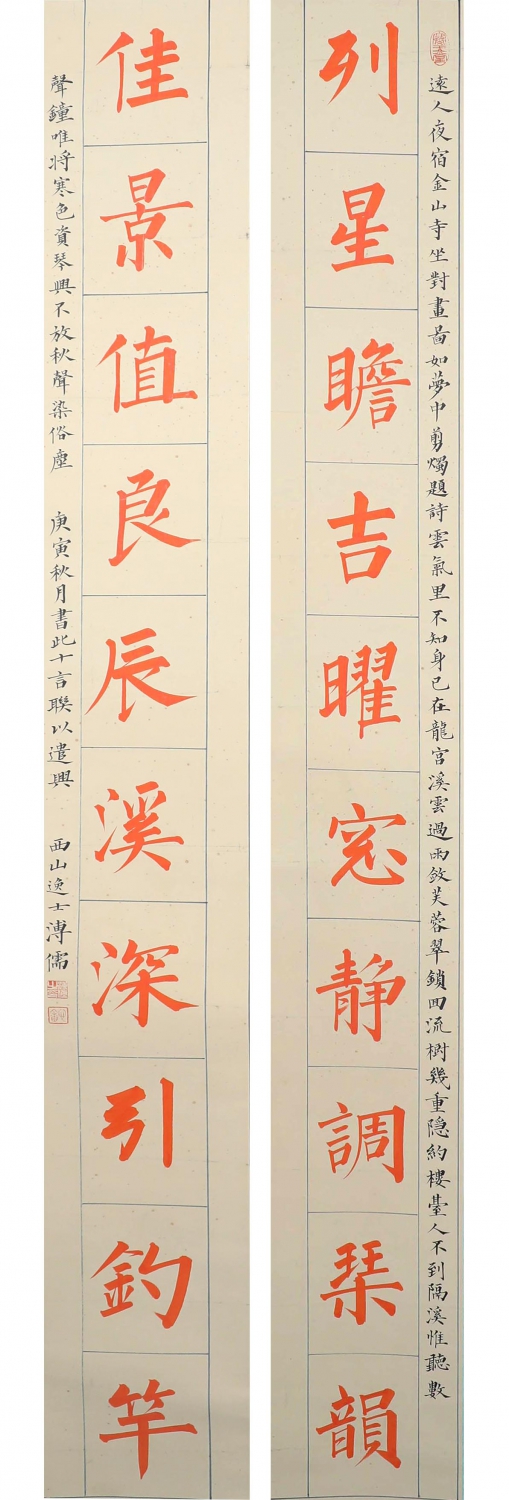 列星瞻吉曜窓静調琴韻
遠人夜宿金山寺坐對畫啚如夢中剪燭題詩雲氣里不知身已在龍宮溪雲過雨斂芙蓉翠鎖回流樹幾重隱約樓臺人不到隔溪惟聽數
佳景值良辰溪深引釣竿
聲鐘唯將寒色資琴興不放秋聲染俗塵 庚寅秋月書此十言聯以遣興 西山逸士溥儒